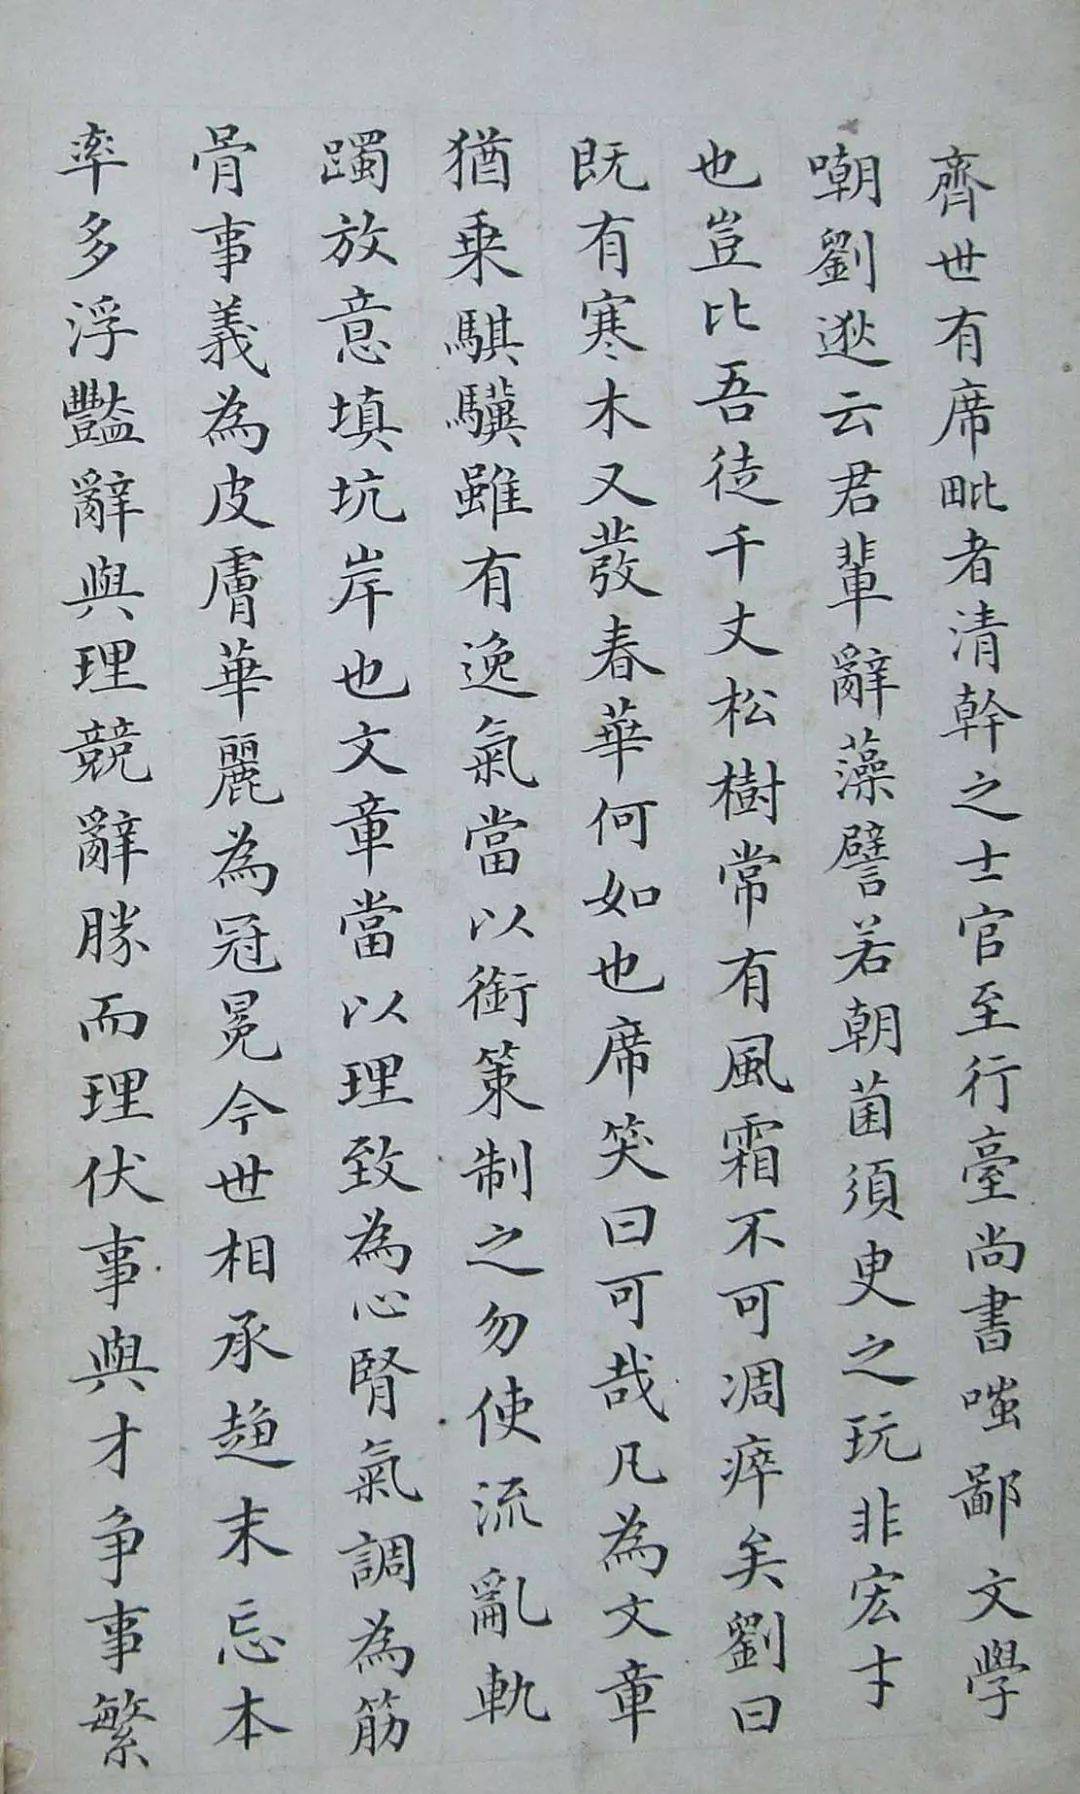 齊世有席毗者清幹之士官至行臺尚書嗤鄙文學
嘲劉逖云君輩辭藻譬若朝菌須臾之玩非宏才
也豈比吾徒千丈松樹常有風霜不可凋瘁矣劉曰
既有寒木又發春華何如也席笑曰可哉凡為文章
猶乗騏驥雖有逸氣當以銜策制之勿使流亂軌
躅放意填坑岸也文章當以理致為心腎氣調為筋
骨事義為皮膚華麗為冠冕今世相承趍末忘本
率多浮豔辭與理競辭勝而理伏事與才争事繁